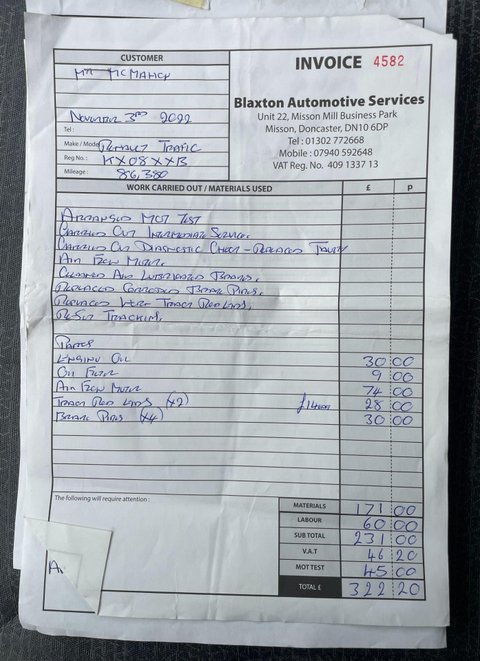 CUSTOMER
INVOICE 4582
Mr McMahon
Blaxton Automotive Services
Unit 22, Misson Mill Business Park
Misson, Doncaster, DN10 6DP
Tel : 01302 772668
Mobile : 07940 592648
VAT Reg. No. 409 1337 13
November 3rd 2022
Tel :
Make / Model Renault Trafic
Reg No. : KX08XXB
Mileage : 86,380
WORK CARRIED OUT / MATERIALS USED £ P
Arranged MOT Test
Carried Out Intermediate Service.
Carried Out Diagnostic Check - Replaced Faulty
Air Flow Meter.
Cleaned And Lubricated Brakes.
Replaced Corroded Brake Pipes.
Replaced Worn Track Rod Ends.
Reset Tracking.
Parts
Engine Oil 30 00
Oil Filter 9 00
Air Flow Meter 74 00
Track Rod Ends (x2) £14 each 28 00
Brake Pipes (x4) 30 00
The following will require attention :
MATERIALS 171 00
LABOUR 60 00
SUB TOTAL 231 00
V.A.T 46 20
MOT TEST 45 00
TOTAL £ 322 20
A